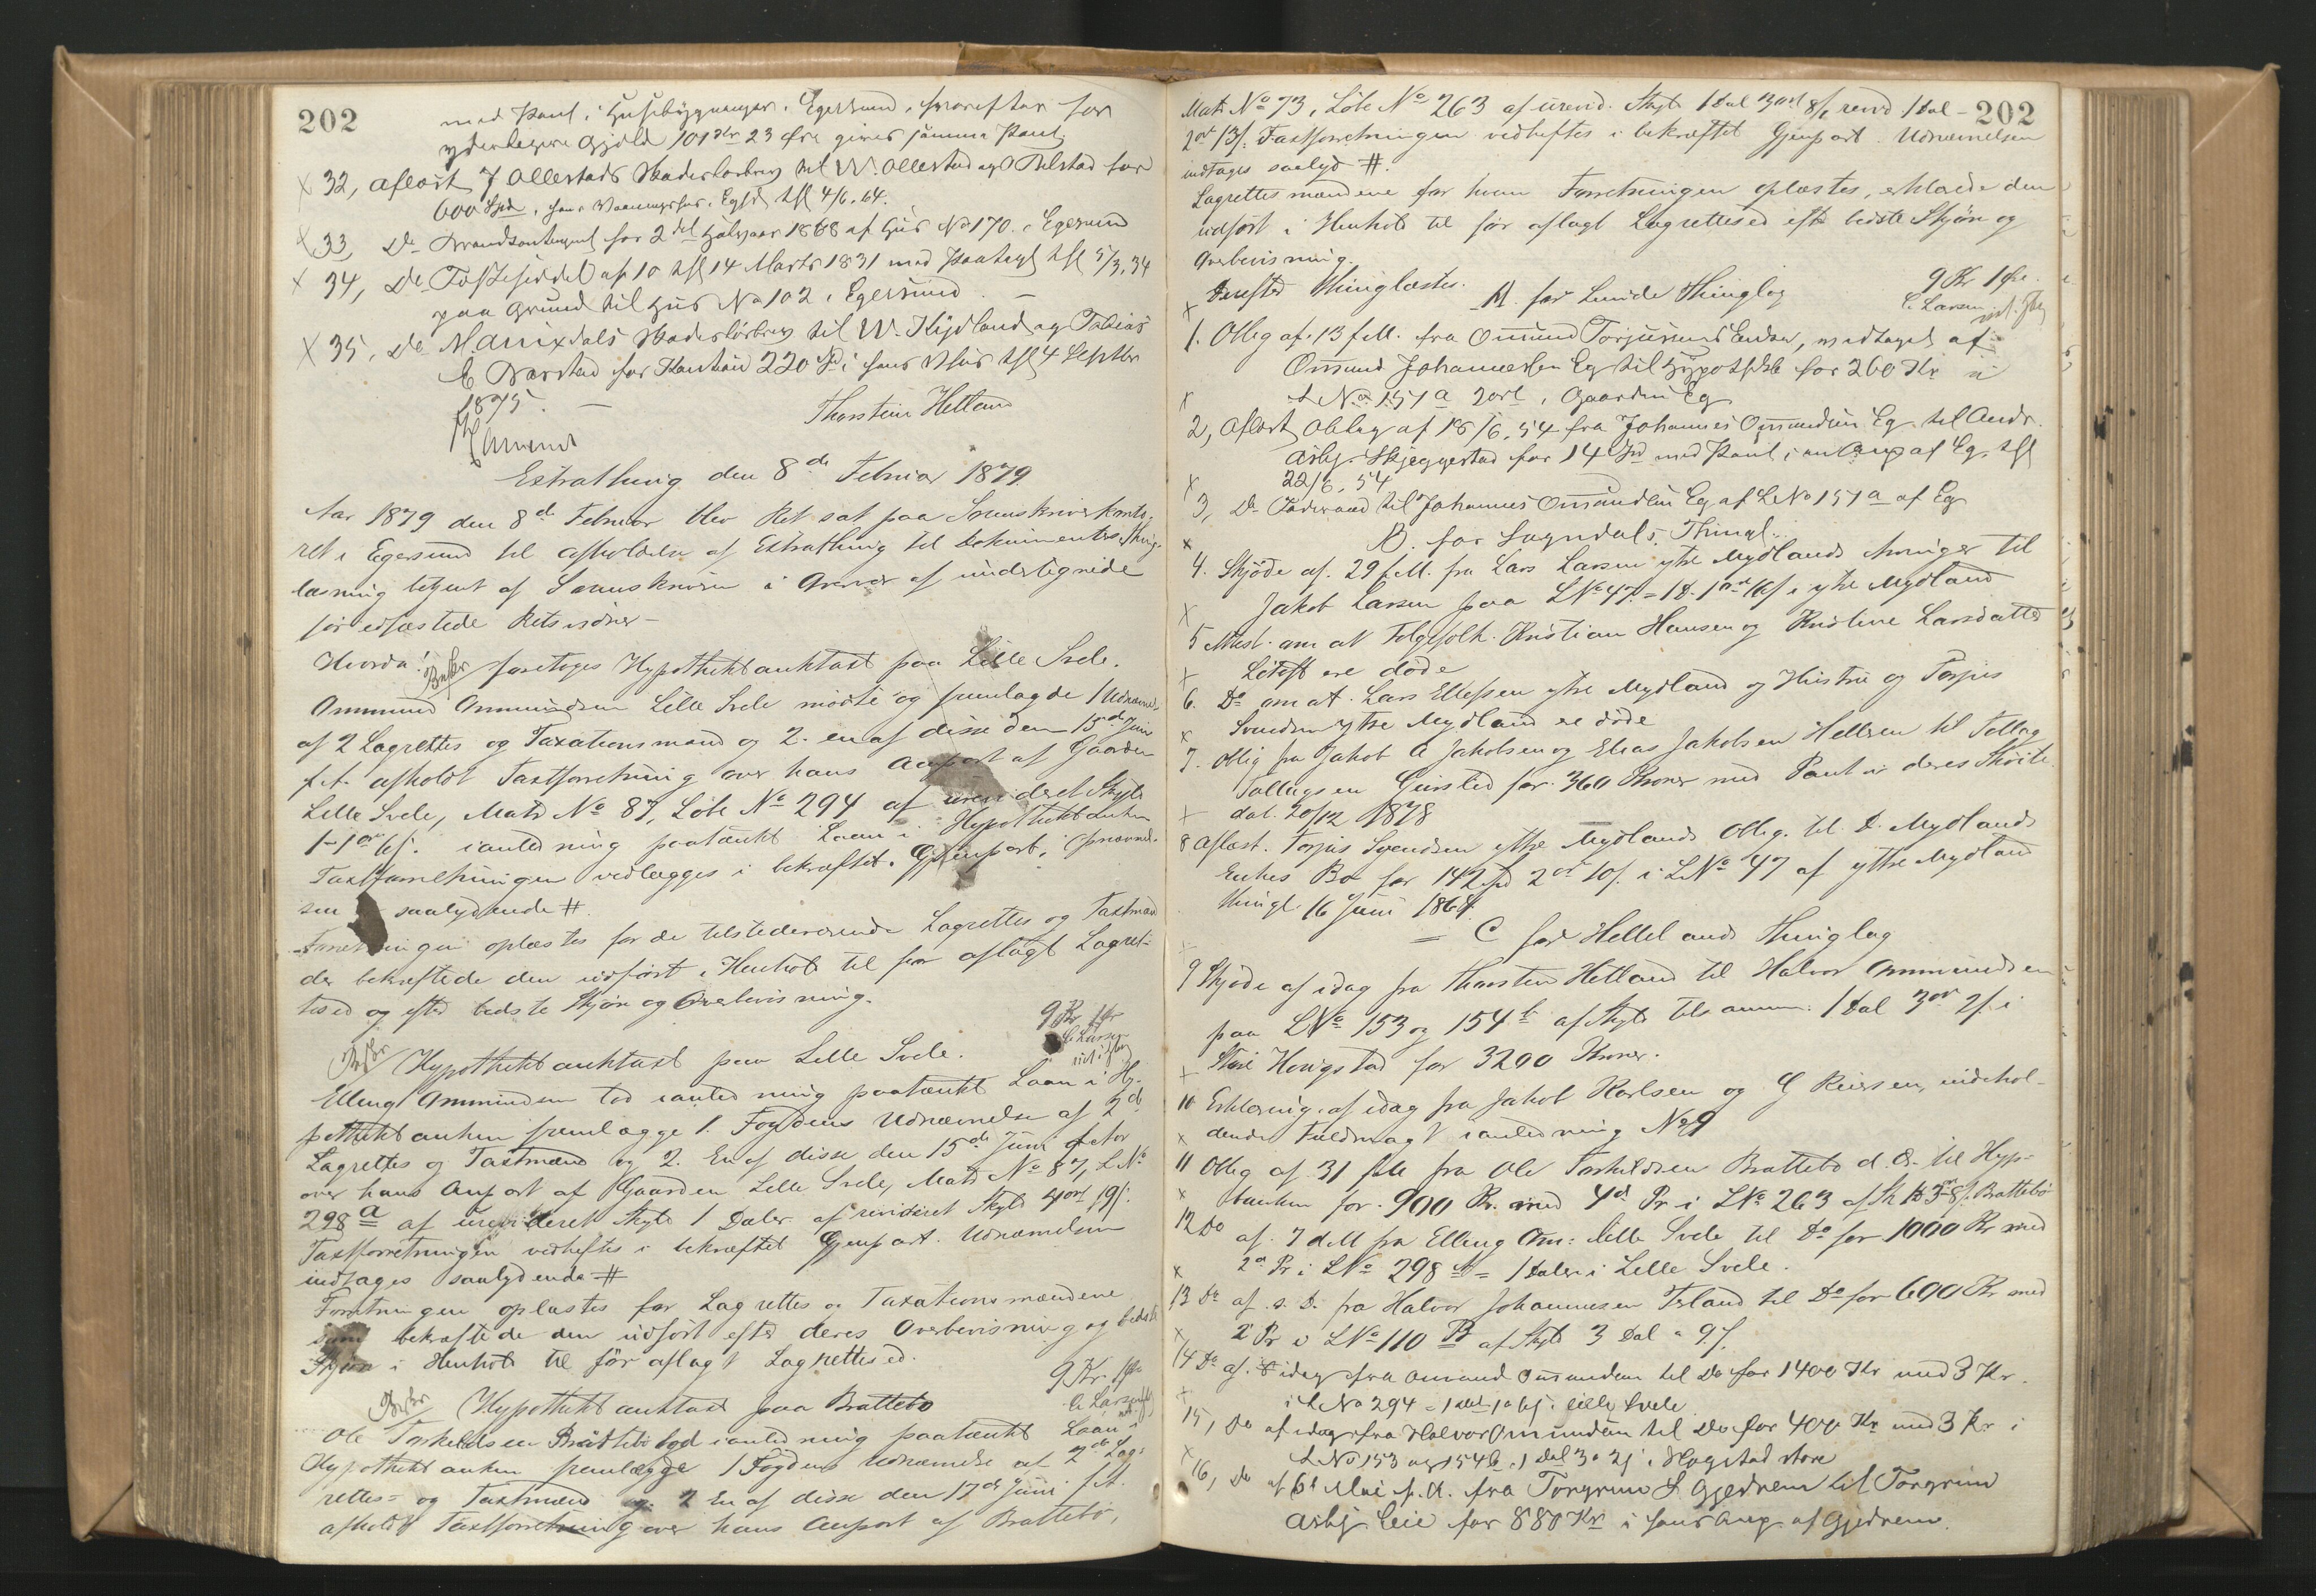 202
med Pant i Husebygninger i Egersund, hvorefter for
yderligere Gjæld 101 Kr 23 Øre gives samme Pant
32, Aflæst J Ollestads Skadesløsbrev til W. Ollestad og Tilstad for
600 Spd, hans Vaaningshus i Egsd thl 4/6. 64.
33, Do Brandkontingent for 2det Halvaar 1868 af Hus No 170 i Egersund
34, Do Fæsteseddel af 10 thl 14 Marts 1831 med Paategn thl 5/3. 34
paa Grund til Hus No 102 i Egersund –
35, Do M. dals Skadesløsbrev til W. Kjydland og Tobias
E for Kaution 220 Spd i hans Hus thl 4 Septbr
1875. – Thorstein Helland
Extrathing den 8de Februar 1879
Aar 1879 den 8de Februar blev Ret sat paa Sorenskriverkonto-
ret i Egersund til Afholdelse af Extrathing til Dokumenters Thing-
læsning betjent af Sorenskriveren i Nærvær af undertegnede
for edfæstede Retsvidner –
Hvorda!
foretoges Hypothekbanktaxt paa Lille Svele.
Ommund Ommundsen Lille Svele mødte og fremlagde 1 Udnævnelse
af 2 Lagrettes og Taxationsmænd og 2. en af disse den 15de Juni
f. A. afholdt Taxtforretning over hans Anpart af Gaarden
Lille Svele, Matr No 87, Løbe No 294 af urevideret Skyld
1-1or 6/. i anledning paatænkt Laan i Hypothekbanken
Taxtforretningen vedlægges i bekræftet Gjenpart.
sen saalydende #.
Forretningen oplæstes for de tilstedeværende Lagrettes og Taxtmænd
der bekræftede den udført i Henhold til før aflagt Lagret-
tesed og efter bedste Skjøn og Overbevisning.
9 Kr
C Larsen
Hypothekbanktaxt paa Lille Svele.
Elling Ommundsen lod i anledning paatænkt Laan i Hy-
pothekbanken fremlægge 1. Fogdens Udnævnelse af 2de
Lagrettes og Taxtmænd og 2. En af disse den 15de Juni f. Aar
over hans Anpart af Gaarden Lille Svele, Matr No 87, L No
298 a af urevideret Skyld 1 Daler af revideret Skyld 4ort 19/.
Taxtforretningen vedheftes i bekræftet Gjenpart. Udnævnelsen
indtages saalydende #
Forretningen oplæstes for Lagrettes og Taxationsmændene
som bekræftede den udført efter deres Overbevisning og bedste
Skjøn i Henhold til før aflagt Lagrettesed.
9 Kr
C. Larsen
Hypothekbanktaxt paa Brattebø
Ole Torkeldsen Brattebø lod i anledning paatænkt Laan i
Hypothekbanken fremlægge 1 Fogdens Udnævnelse af 2de Lag-
rettes- og Taxtmænd og 2 En af disse den 17de Juni f. A.
afholdt Taxtforretning over hans Anpart af Brattebø,
202
Matr No 73, Løbe No 263 af urevid. Skyld 1 Dal 3ort 8/, revid 1 Dal
2ort 13/. Taxtforretningen vedheftes i bekræftet Gjenpart. Udnævnelsen
indtages saalyd #.
Lagrettesmændene for hvem Forretningen oplæstes, erklærede den
udført i Henhold til før aflagt Lagrettesed efter bedste Skjøn og
Overbevisning.
9 Kr 1 Øre
C. Larsen
Derefter Thinglæstes.
A. for Lunde Thinglag
1. Oblig af 13 f. M. fra Omund Torjusens Enke, vedtaget af
Omund Johannessen Eg til Hypothbk for 260 Kr i
L No 151 a 2ort i Gaarden Eg
2, Aflæst Oblig af 18/6. 54 fra Johannes Omundsen Eg til Andr.
Asbj. Skjeggestad for 14 Spd med Pant i en Anp af Eg, thl
22/6. 54
3, Do Føderaad til Johannes Omundsen Eg af L No 151 a af Eg
B. for Sogndals Thingl.
4. Skjøde af 29 f. M. fra Lars Larsen ytre Mydlands Arvinger til
Jakob Larsen paa L No 47. = 1 D. 1ort 16/ i ytre Mydland
5 Attest. om at Folgefolk. Kristian Hansen og Kristine Larsdatter
Løtoft ere døde
6. Do om at Lars Ellefsen ytre Mydland og Hustru og Torjus
Svendsen ytre Mydland ere døde
7. Oblig fra Jakob A Jakobsen og Elias Jakobsen Hellren til Tollag
Tollagsen Guirsted for 360 Kroner med Pant i deres Skøite
dat. 20/12 1878
8 Aflæst. Torjus Svendsen ytre Mydlands Oblig. til D. Mydlands
Enkes Bo for 142 Spd 2or 10/. i L No 47 af ytre Mydland
thingl. 16 Juni 1864
= C for Hellelands Thinglag
9 Skjøde af idag fra Thorsten Hetland til Halvor Ommundsen
paa L No 153 og 154 b af Skyld tilsammen 1 Dal 3or 2/. i
Store Hovigstad for 3200 Kroner.
10 Erklæring af idag fra Jakob Karlsen og G Reiersen, indehol-
dende Fuldmagt i anledning No 9
11 Oblig af 31 f. M fra Ole Torkildsen Brattebø d. Æ. til Hyp-
banken for 900 Kr. med 4de Pr i L No 263 af Sk 1 D 3or 8/. Brattebø
12 Do af 7 d. M fra Elling Om: Lille Svele til Do for 1000 Kr med
2d Pr i L No 298 a = 1 Daler i Lille Svele.
13 Do af s. D. fra Halvor Johannesen Terland til Do for 600 Kr med
2 Pr i L No 110 B af Skyld 3 Dal " 9/.
14 Do af idag fra Omund Omundsen til Do for 1400 Kr med 3 Pr.
i L No 294 = 1 Dal 1o 6/ i Lille Svele
15, Do af idag fra Halvor Omundsen til Do for 400 Kr med 3 Pr i
L No 153 og 154 b = 1 Dal 3o 2/ i Hogstad store
16, Do af 6te Mai f. A. fra Torgrim S. Gjedrem til Torgrim
Asbj. Eeie for 880 Kr i hans Anp. af Gjedrem.